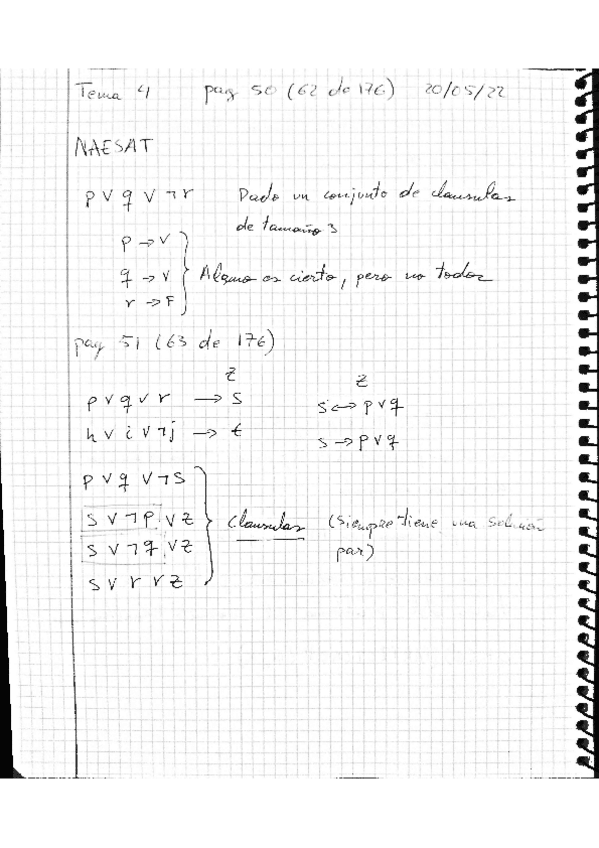 Tema 4 pag 50 (62 de 176) 20/05/22
NAESAT
p ∨ q ∨ ¬r Dado un conjunto de clausulas
de tamaño 3
p → V
q → V Alguno es cierto, pero no todos
r → F
pag 51 (63 de 176)
z z
p ∨ q ∨ r → s s ↔ p ∨ q
h ∨ i ∨ ¬j → t s → p ∨ q
p ∨ q ∨ ¬s
s ∨ ¬p ∨ z Clausulas (Siempre tiene una solución
s ∨ ¬q ∨ z par)
s ∨ r ∨ z